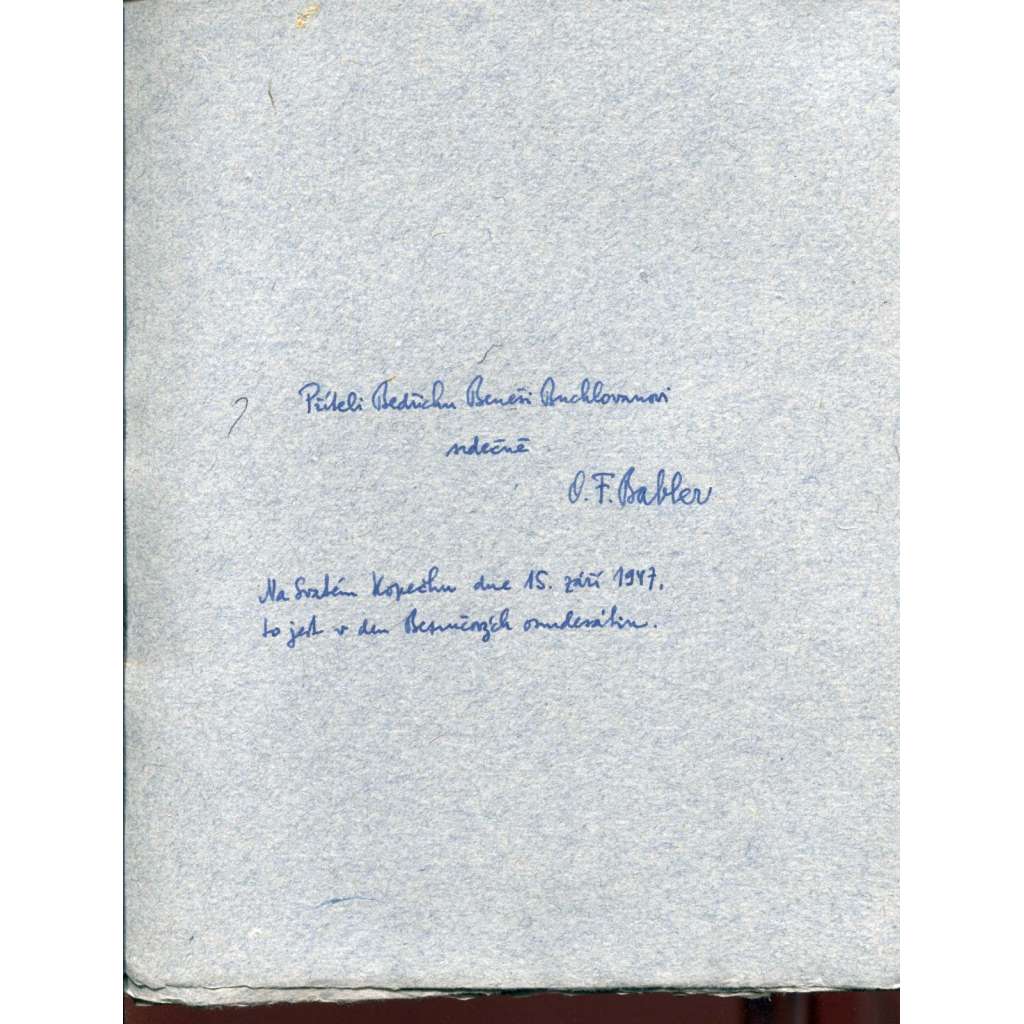 Příteli Bedřichu Beneši Buchlovanovi
srdečně
O. F. Babler
Na Svatém Kopečku dne 15. září 1947.
to jest v den Bezručových osmdesátin.